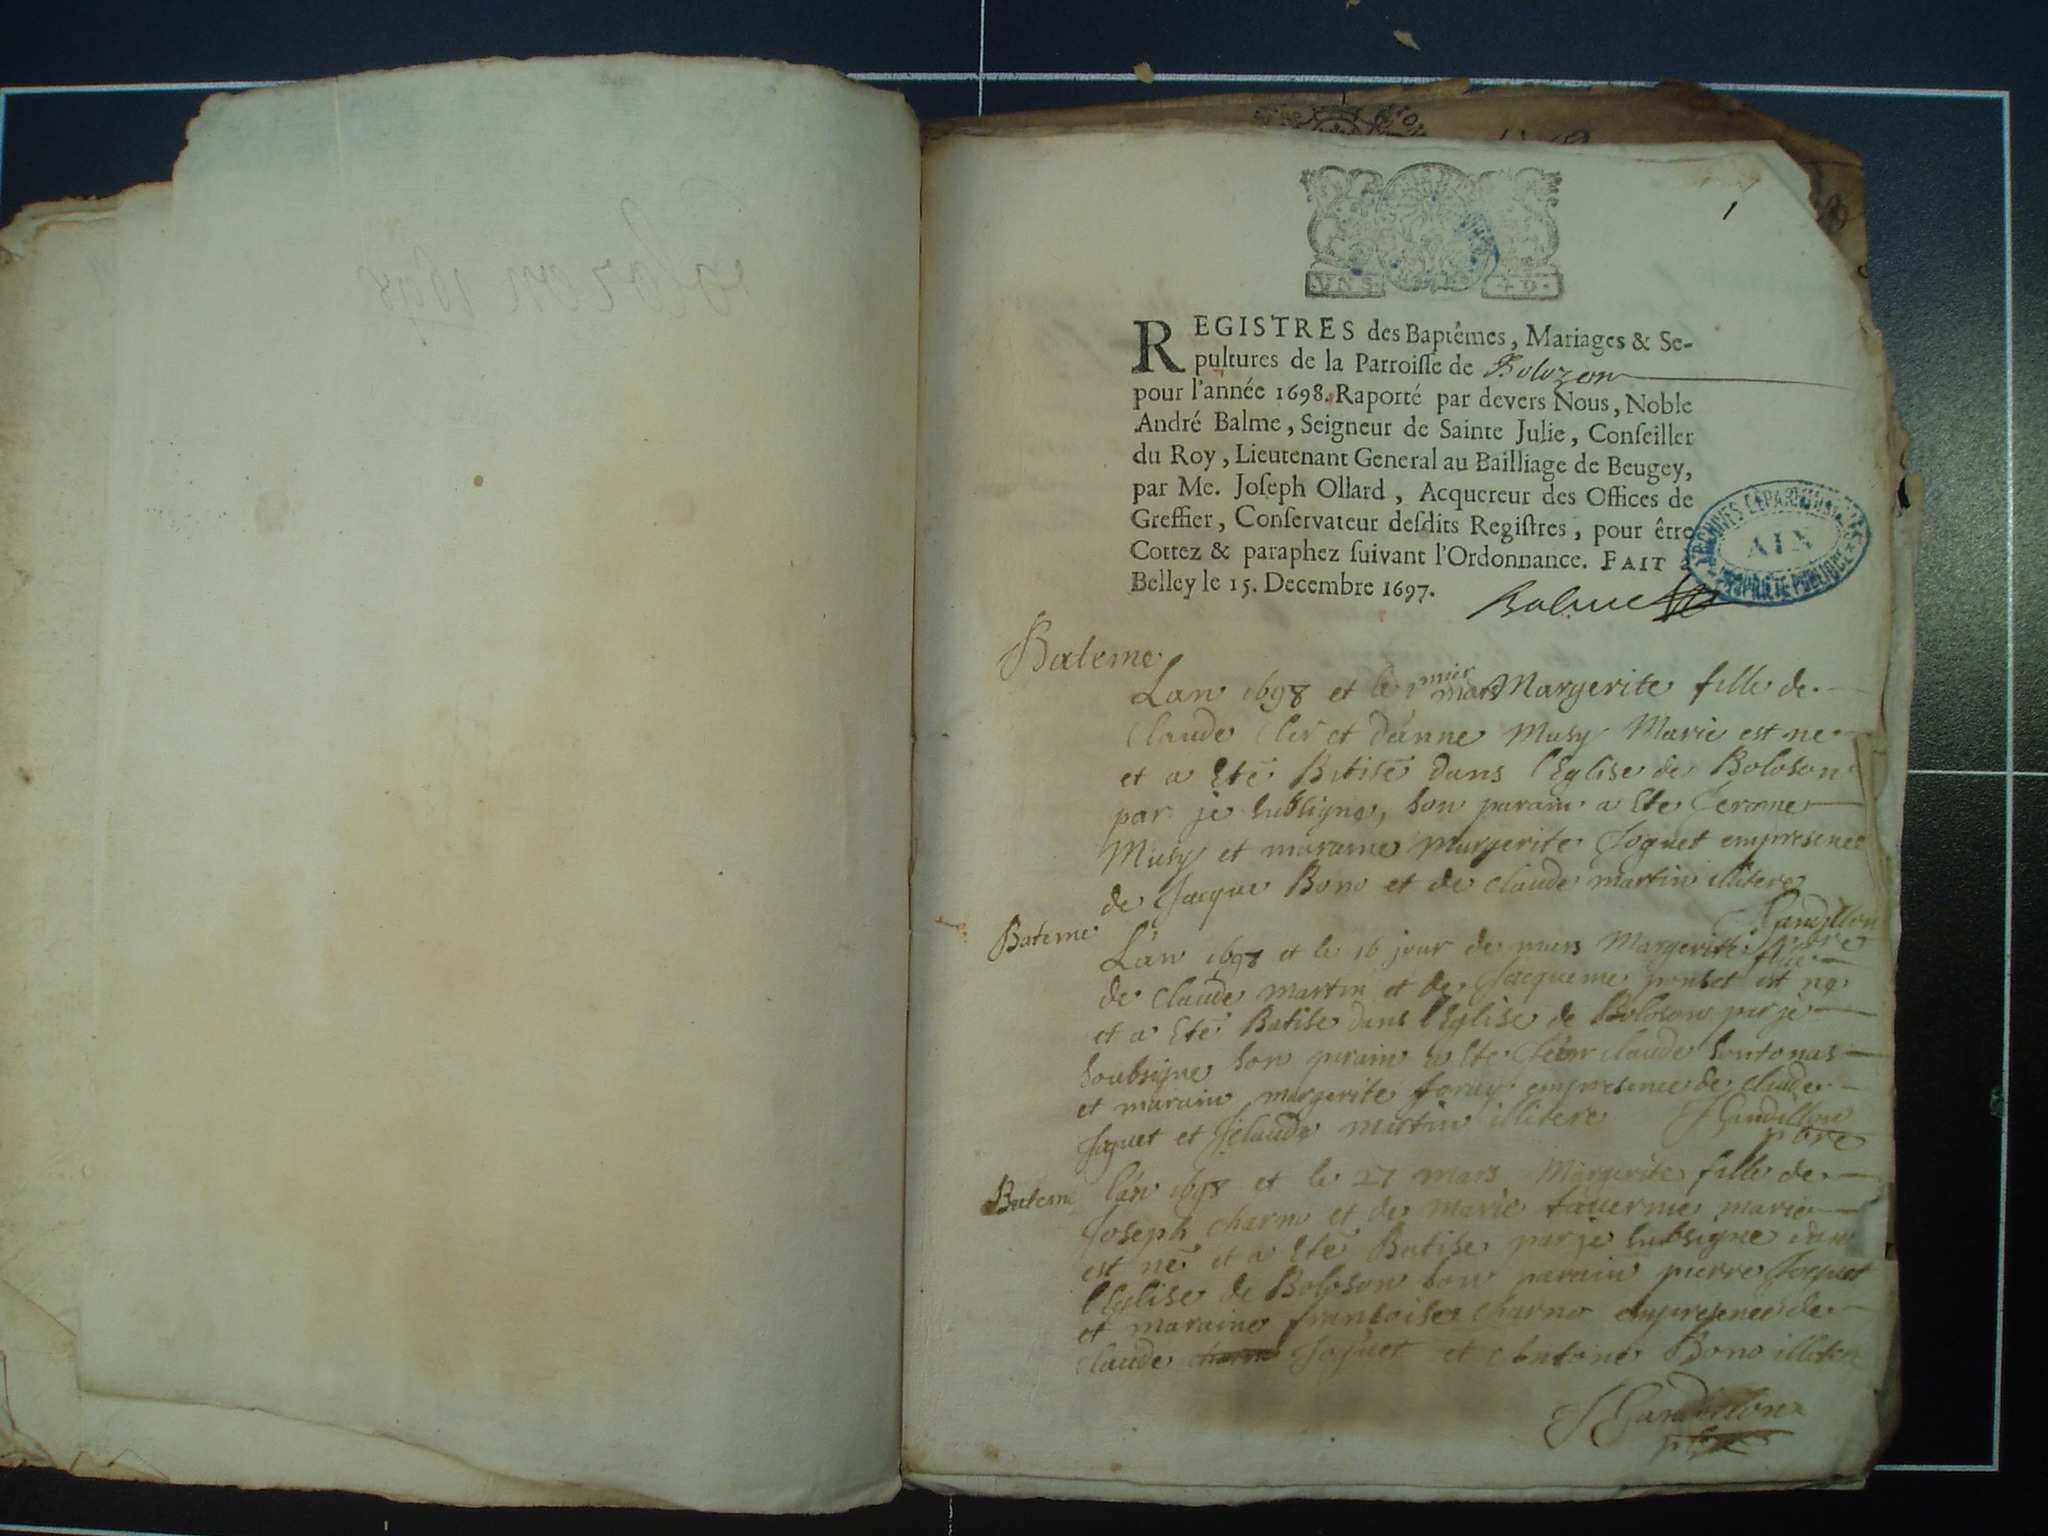 1
VN S. 4 D.
REGISTRES des Baptêmes, Mariages & Se-
pultures de la Parroisse de Bolozon
pour l'année 1698. Raporté par devers Nous, Noble
André Balme, Seigneur de Sainte Julie, Conseiller
du Roy, Lieutenant General au Bailliage de Beugey,
par Me. Joseph Ollard, Acquereur des Offices de
Greffier, Conservateur desdits Registres, pour être
Cottez & paraphez suivant l'Ordonnance. FAIT
Belley le 15. Decembre 1697.
ARCHIVES DEPARTEMENTALES
AIN
PROPRIETE PUBLIQUE
Balme
Bateme
Lan 1698 et le 1 mier mars Margerite fille de
Claude Cler et danne Musy Marie est ne
et a Eté Batisé dans l'Eglise de Boloson
par je subsigne, son parain a Ete Jerome
Musy et maraine Margerite Joguet empresence
de Jacque Bono et de claude martin illitere
Gandillon
pbre
Bateme
Lan 1698 et le 16 jour de mars Margerite fille
de Claude martin et de Jacqueme ponset est ne
et a Eté Batise dans l'Eglise de Boloson par je
soubsigne son parain a Ete claude sontonas
et marain margerite empresence de claude
Joguet et claude martin illitere Gandillon
pbre
Bateme
Lan 1698 et le 27 mars Margerite fille de
Joseph charno et de marie tavernie marie
est né et a Eté Batise par je subsigne dans
l'Eglise de Boloson son parain pierre Joguet
et maraine fransoise charno empresence de
claude Joguet et Antoine Bono illitere
J Gandillon
pbre